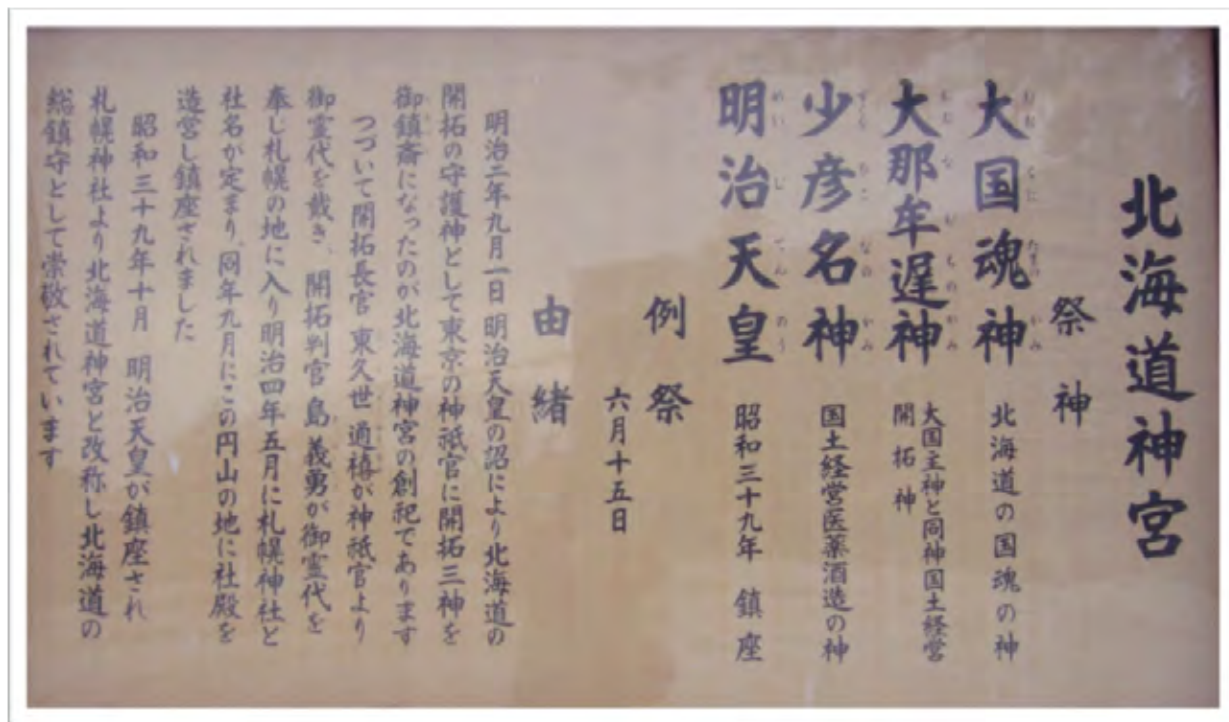 北海道神宮
祭神
大国魂神 北海道の国魂の神
大那牟遅神 大国主神と同神国土経営
開拓神
少彦名神 国土経営医薬酒造の神
明治天皇 昭和三十九年 鎮座
例祭
六月十五日
由緒
明治二年九月一日 明治天皇の詔により北海道の
開拓の守護神として東京の神祇官に開拓三神を
御鎮斎になったのが北海道神宮の創祀であります
つづいて開拓長官 東久世 通禧が神祇官より
御霊代を戴き、開拓判官 島 義勇が御霊代を
奉じ札幌の地に入り明治四年五月に札幌神社と
社名が定まり、同年九月にこの円山の地に社殿を
造営し鎮座されました
昭和三十九年十月 明治天皇が鎮座され
札幌神社より北海道神宮と改称し北海道の
総鎮守として崇敬されています